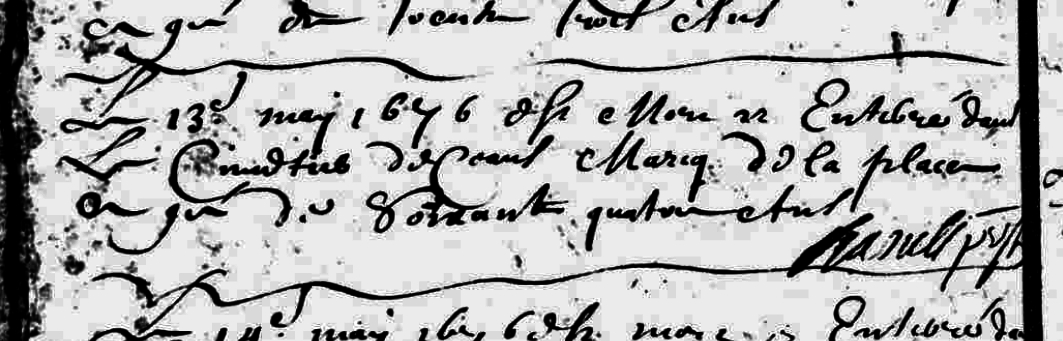 agé de
Le 13e may 1676 est Mort et Enterré dans
Le Cimetiere de Ceans Marcq de la place
agé de Soixante quatorze Ans
Le 14e may 1676 est mort et Enterré da